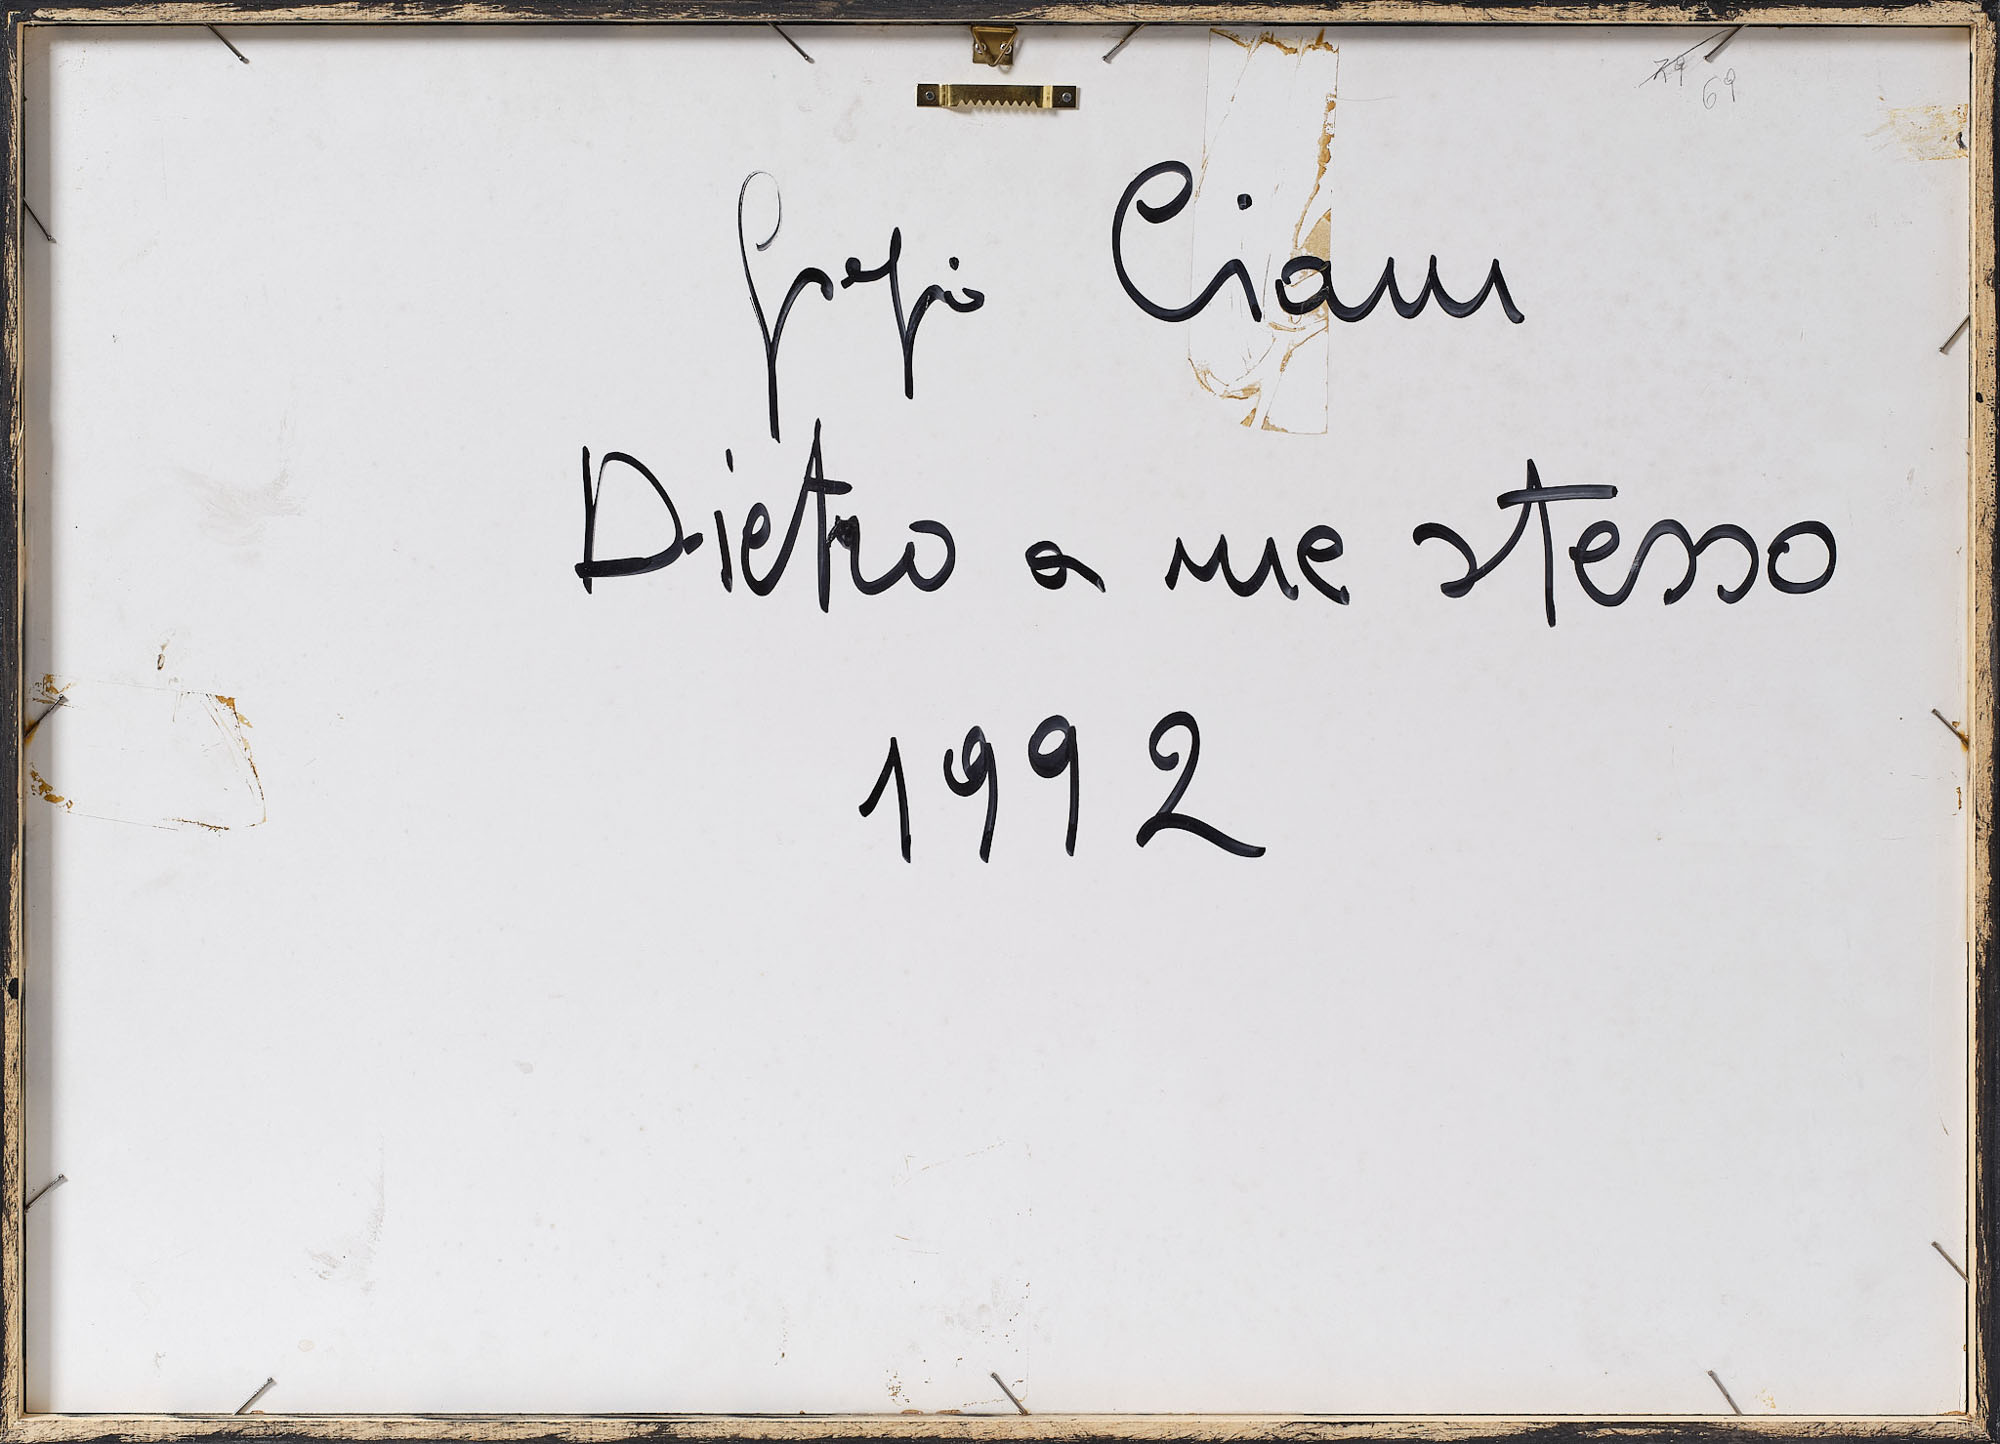 69
Giorgio Ciam
Dietro a me stesso
1992